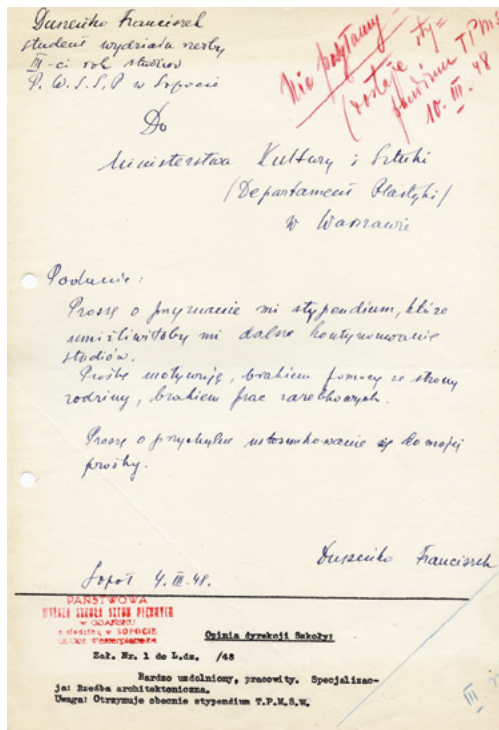 Duszeńko Franciszek
student wydziału rzeźby
III-ci rok studiów
P.W.S.S.P w Sopocie
Nie
(dostaje sty-
pendium TPMS
10.III.48
Do
Ministerstwa Kultury i Sztuki
/Departament Plastyki/
w Warszawie
Podanie:
Proszę o przyznanie mi stypendium, które
umożliwiłoby mi dalsze kontynuowanie
studiów.
Prośbę motywuję, brakiem pomocy ze strony
rodziny, brakiem prac zarobkowych.
Proszę o przychylne ustosunkowanie się do mojej
prośby.
Duszeńko Franciszek
Sopot 4.III.48.
PAŃSTWOWA
WYŻSZA SZKOŁA SZTUK PIĘKNYCH
w GDAŃSKU
z siedzibą w SOPOCIE
Opinia dyrekcji Szkoły:
Zał. Nr. 1 do L.dz. /48
Bardzo uzdolniony, pracowity. Specjalizac-
ja: Rzeźba architektoniczna.
Uwaga: Otrzymuje obecnie stypendium T.P.M.S.W.